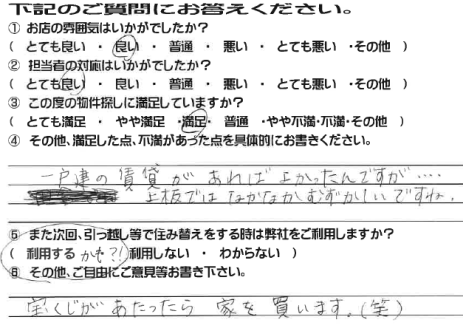 下記のご質問にお答えください。
① お店の雰囲気はいかがでしたか？
( とても良い ・ 良い ・ 普通 ・ 悪い ・ とても悪い ・その他 )
② 担当者の対応はいかがでしたか？
( とても良い ・ 良い ・ 普通 ・ 悪い ・ とても悪い ・その他 )
③ この度の物件探しに満足していますか？
( とても満足 ・ やや満足 ・満足・ 普通 ・やや不満・不満・その他 )
④ その他、満足した点、不満があった点を具体的にお書きください。
一戸建の賃貸があればよかったんですが....
上板ではなかなかむずかしいですね。
⑤ また次回、引っ越し等で住み替えをする時は弊社をご利用しますか？
( 利用する かも?! 利用しない ・ わからない )
⑥ その他、ご自由にご意見等お書き下さい。
宝くじがあたったら 家を買います。(笑)